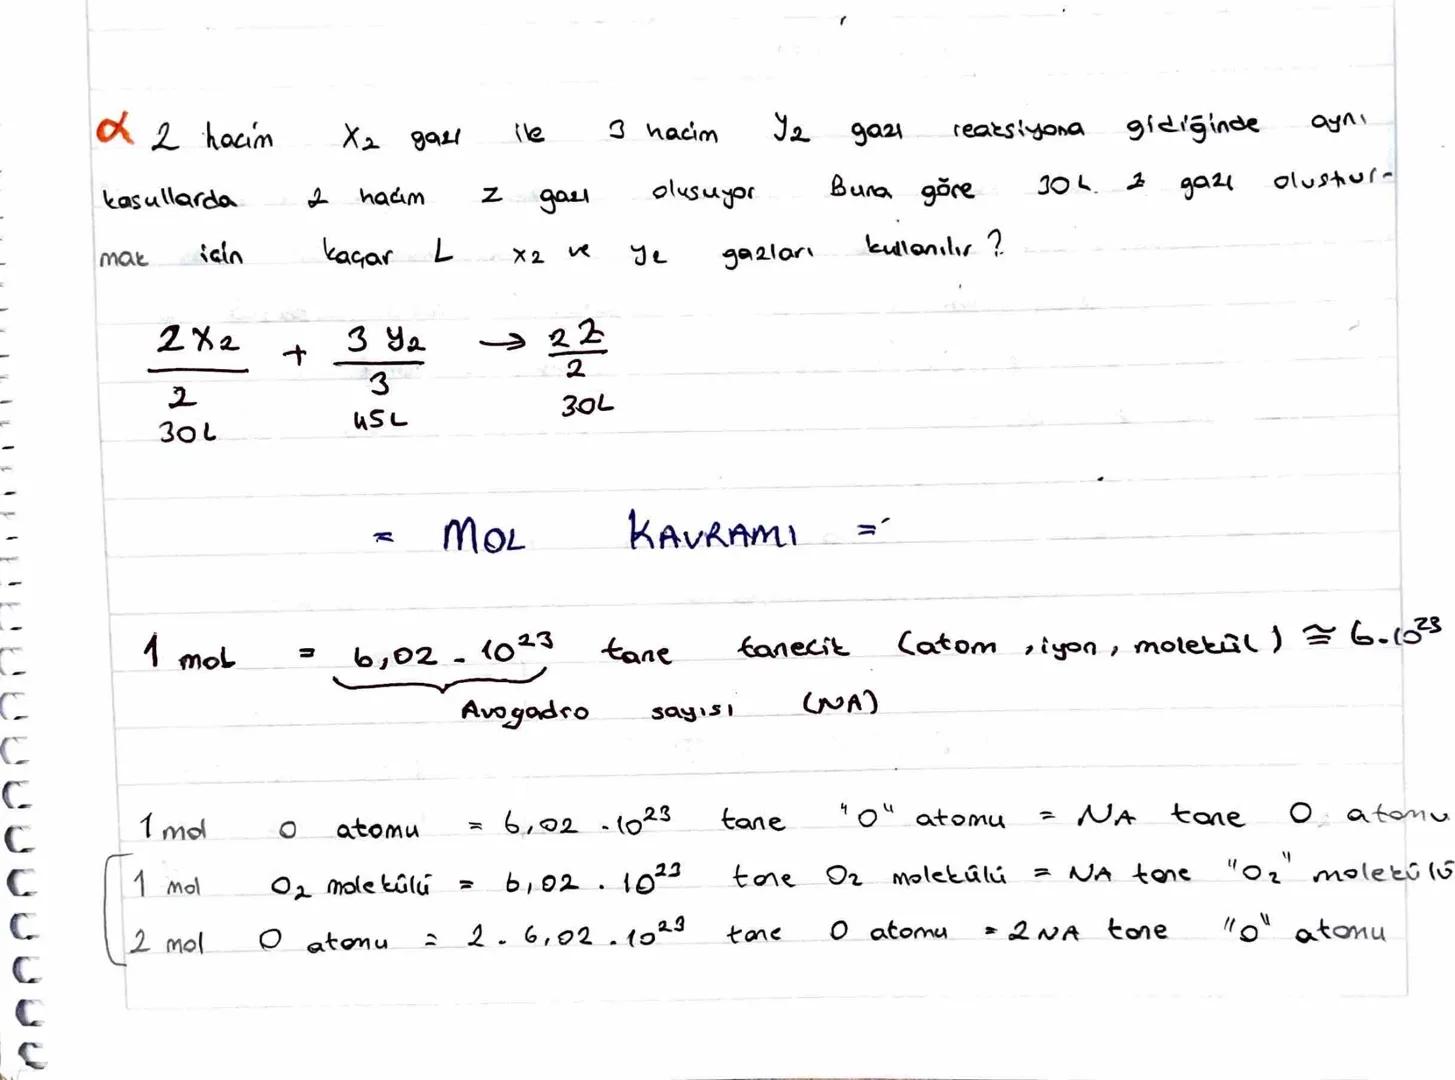 α 2 hacim X2 gazı ile 3 hacim Y2 gazı reaksiyona girdiğinde aynı
koşullarda 2 hacim Z gazı oluşuyor Buna göre 30 L. Z gazı oluştur-
mak için kaçar L X2 ve Y2 gazları kullanılır?
2X2 + 3Y2 → 2Z
2 3 2
30L 45L 30L
= MOL KAVRAMI =
1 mol = 6,02 . 10²³ tane tanecik (atom, iyon, molekül) ≅ 6.10²³
Avogadro sayısı (NA)
1 mol O atomu = 6,02 . 10²³ tane "O" atomu = NA tane O atomu
1 mol O2 molekülü = 6,02 . 10²³ tane O2 molekülü = NA tane "O2" molekülü
2 mol O atomu = 2 . 6,02 . 10²³ tane O atomu = 2NA tane "O" atomu